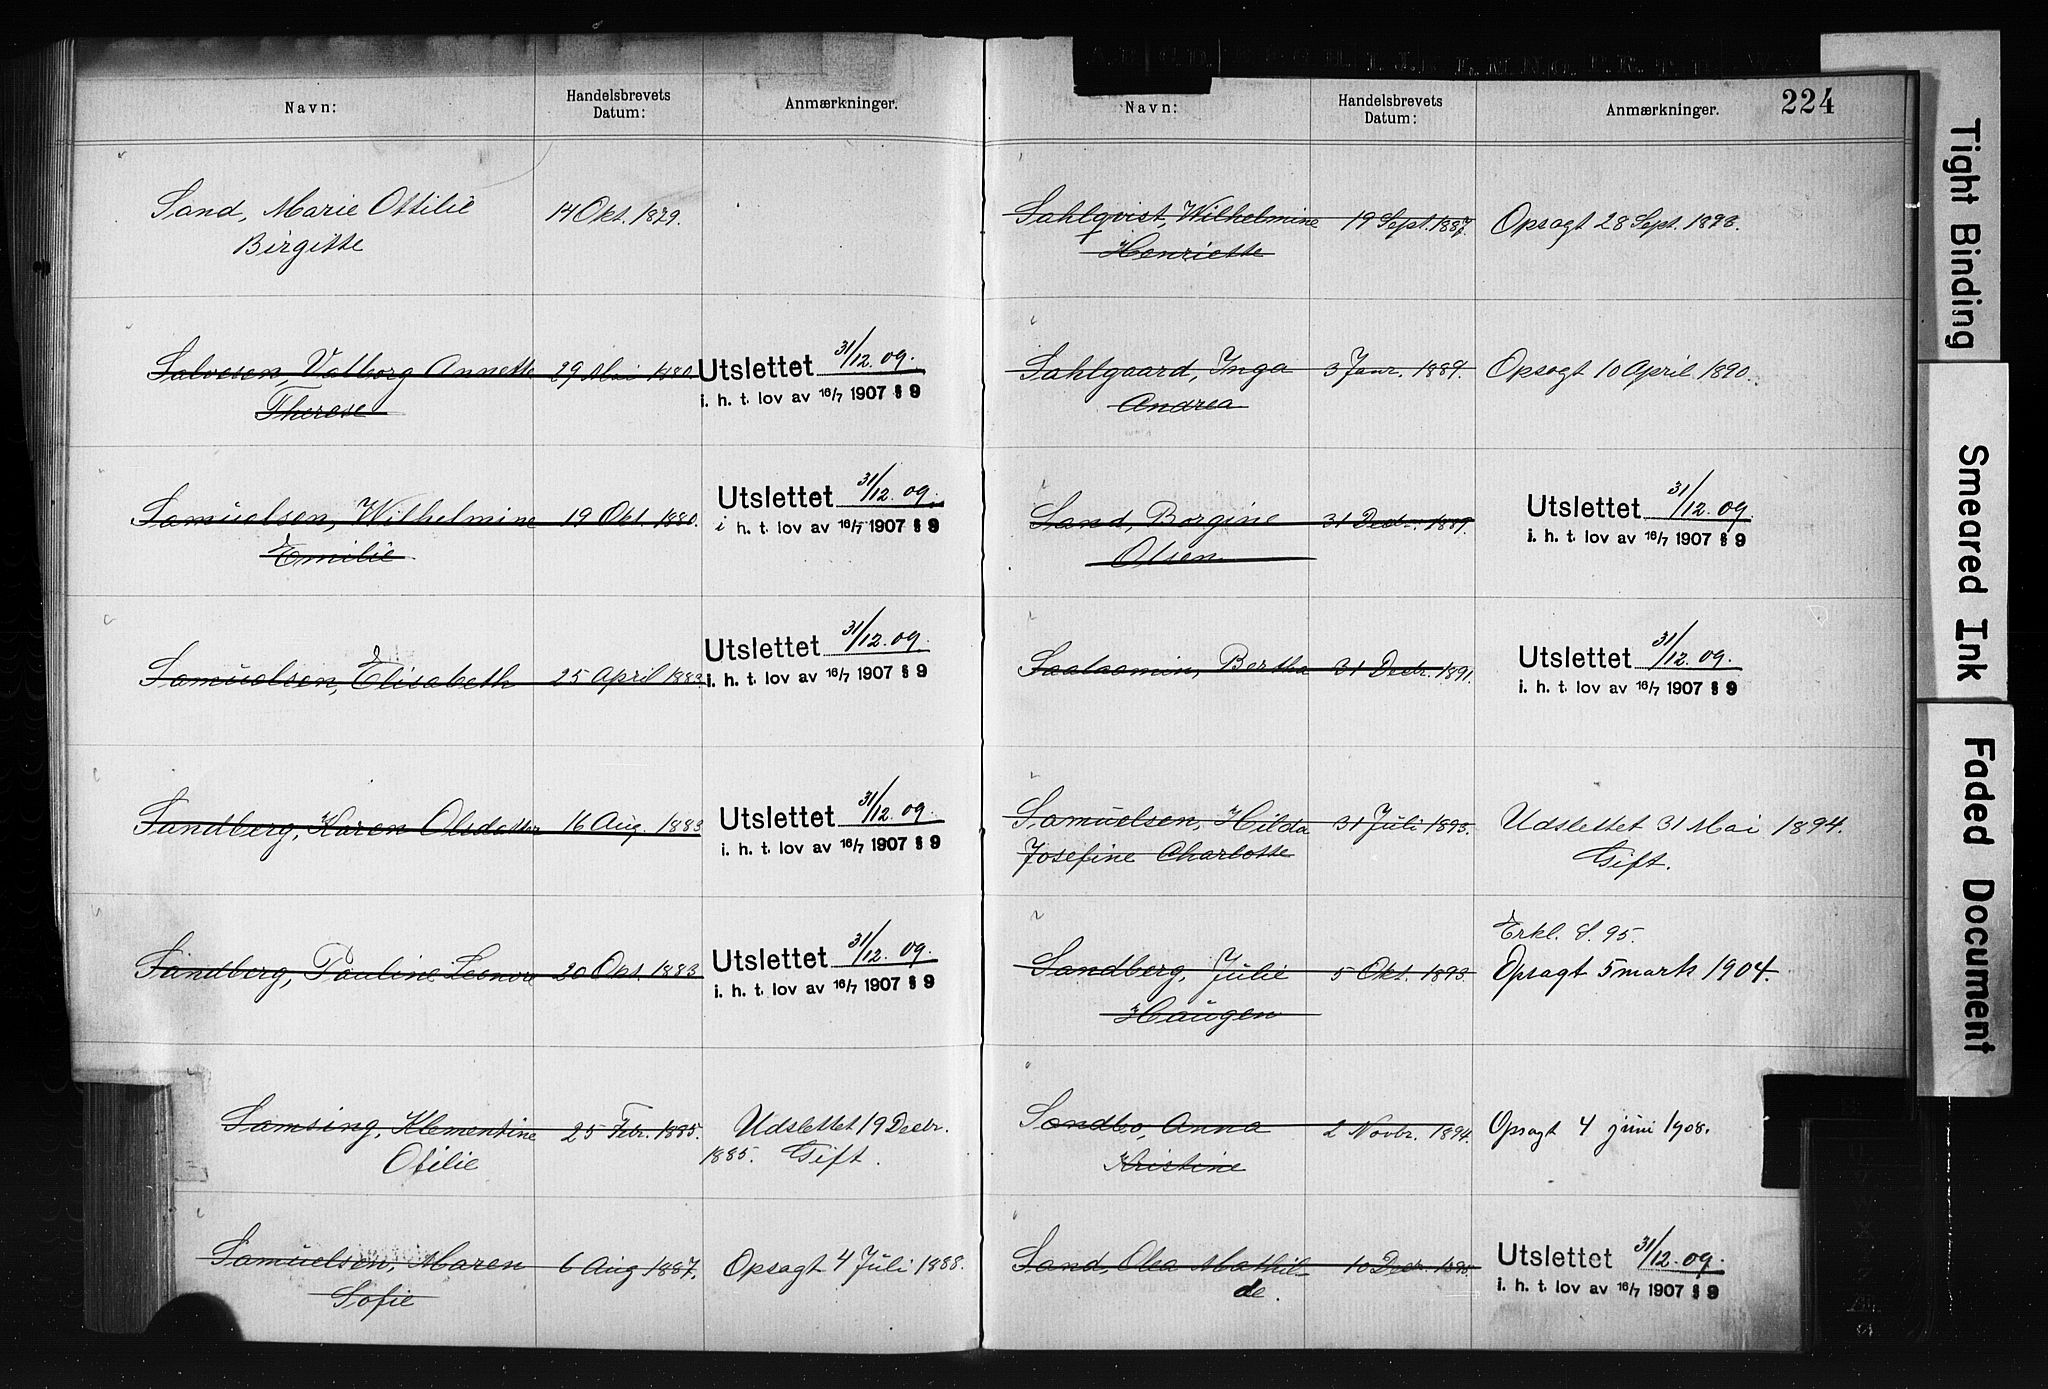 Navn: Handelsbrevets Datum: Anmærkninger.
Sand, Marie Ottilie 14 Okt. 1879.
Birgitte
Salvesen, Valborg Annette 29 Mai 1880. Utslettet 31/12. 09.
Therese i. h. t. lov av 16/7 1907 § 9
Samuelsen, Wilhelmine 19 Okt. 1880. Utslettet 31/12. 09.
Emilie i h. t. lov av 16/7 1907 § 9
Samuelsen, Elisabeth 25 April 1883. Utslettet 31/12. 09.
i. h. t. lov av 16/7 1907 § 9
Sandberg, Karen Olsdatter 16 Aug. 1883 Utslettet 31/12. 09.
i. h. t. lov av 16/7 1907 § 9
Sandberg, Pauline Leonore 20 Okt. 1883 Utslettet 31/12. 09.
i. h. t. lov av 16/7 1907 § 9
Samsing, Klementine 25 Febr. 1885. Udslettet 19 Decbr.
Otilie 1885. Gift.
Samuelsen, Maren 6 Aug 1887. Opsagt 4 Juli 1888.
Sofie
Navn: Handelsbrevets Datum: Anmærkninger. 224
Sahlqvist, Wilhelmine 19 Sept. 1887. Opsagt 28 Sept. 1893.
Henriette
Sahlgaard, Inga 3 Janr. 1889. Opsagt 10 April 1890.
Andrea
Sand, Borgine 31 Decbr. 1889. Utslettet 31/12. 09.
Olsen i. h. t. lov av 16/7 1907 § 9
Bertha 31 Decbr. 1891. Utslettet 31/12. 09.
i. h. t. lov av 16/7 1907 § 9
Samuelsen, Hilda 31 Juli 1893. Udslettet 31 Mai 1894.
Josefine Charlotte Gift.
Erkl. S. 95.
Sandberg, Julie 5 Okt. 1893. Opsagt 5 mark 1904.
Haugen
Sandbo, Anna 2 Novbr. 1894. Opsagt 4 juni 1908.
Kristine
Sand, Olea Mathil- 10 Decbr. Utslettet 31/12. 09.
de. i. h. t. lov av 16/7 1907 § 9
Tight Binding
Smeared Ink
Faded Document